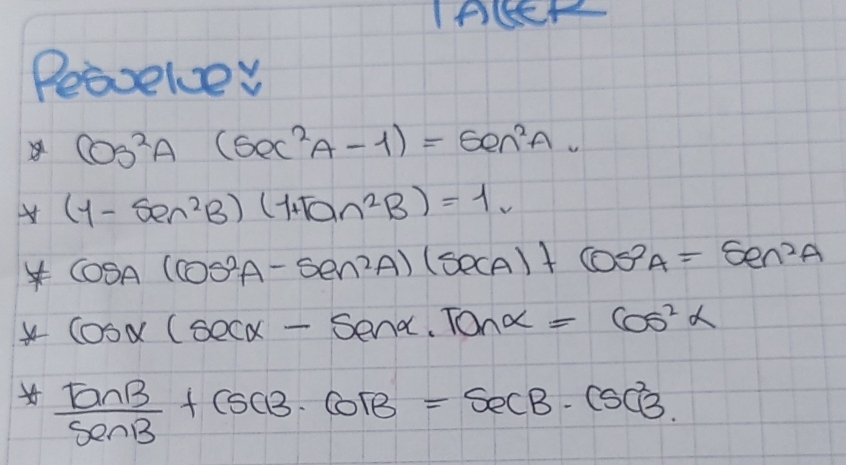 TALLER
Resuelve:
* Cos²A (Sec²A - 1) = Sen²A.
* (1 - Sen²B) (1+Tan²B) = 1.
* COSA (COS²A - Sen²A) (SecA) + COS²A = Sen²A
* Cosα (Secα - Senα. Tanα = Cos²α
* TanB/SenB + CSCB. COTB = SecB - CSC²B.